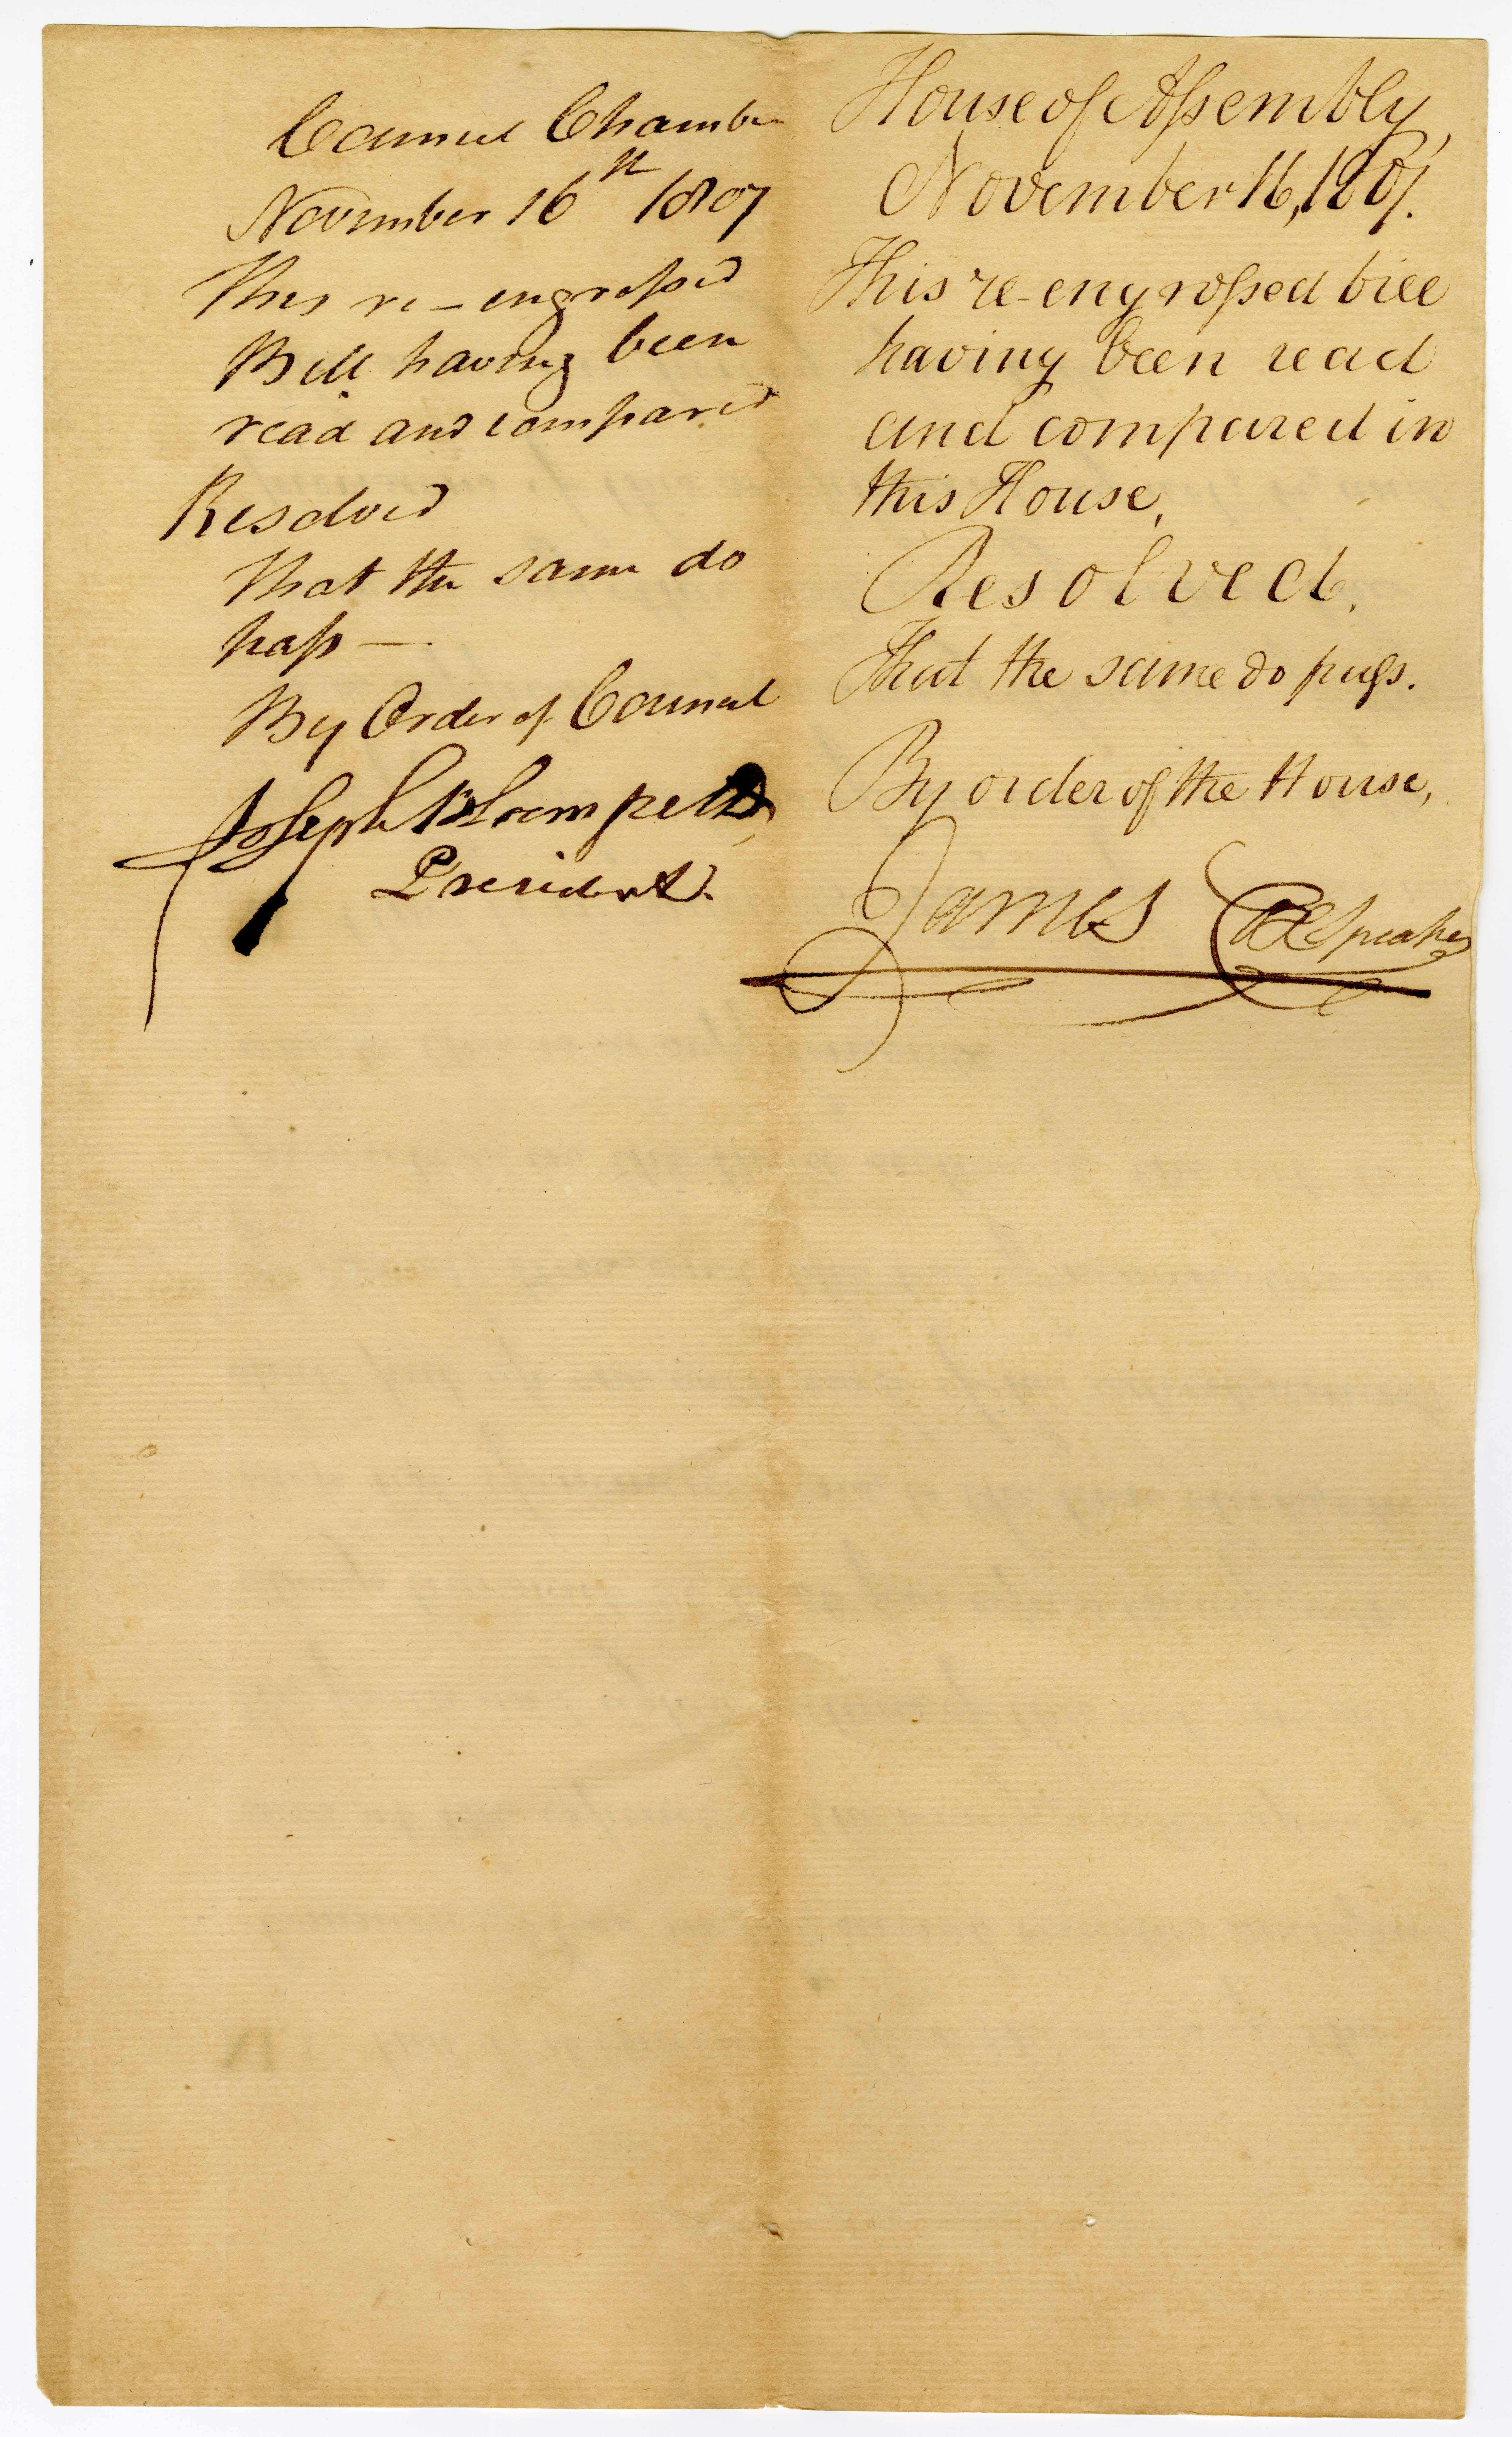 Council Chamber
November 16th 1807
This re-engrossed
Bill having been
read and compared
Resolved
That the same do
pass —.
By Order of Council
Joseph Bloomfield,
President.
House of Assembly,
November 16, 1807.
This re-engrossed bill
having been read
and compared in
this House,
Resolved,
That the same do pass.
By order of the House,
James Cox Speaker